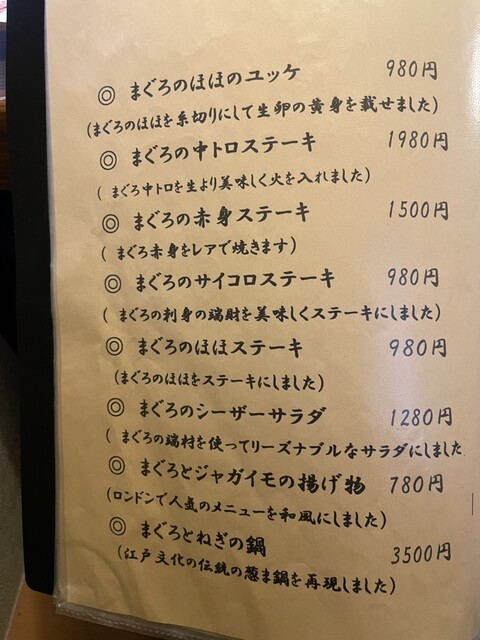 ◎ まぐろのほほのユッケ 980円
(まぐろのほほを糸切りにして生卵の黄身を載せました)
◎ まぐろの中トロステーキ 1980円
( まぐろ中トロを生より美味しく火を入れました)
◎ まぐろの赤身ステーキ 1500円
( まぐろ赤身をレアで焼きます)
◎ まぐろのサイコロステーキ 980円
( まぐろの刺身の端財を美味しくステーキにしました)
◎ まぐろのほほステーキ 980円
(まぐろのほほをステーキにしました)
◎ まぐろのシーザーサラダ 1280円
( まぐろの端材を使ってリーズナブルなサラダにしました
◎ まぐろとジャガイモの揚げ物 780円
(ロンドンで人気のメニューを和風にしました)
◎ まぐろとねぎの鍋 3500円
(江戸文化の伝統の葱ま鍋を再現しました)